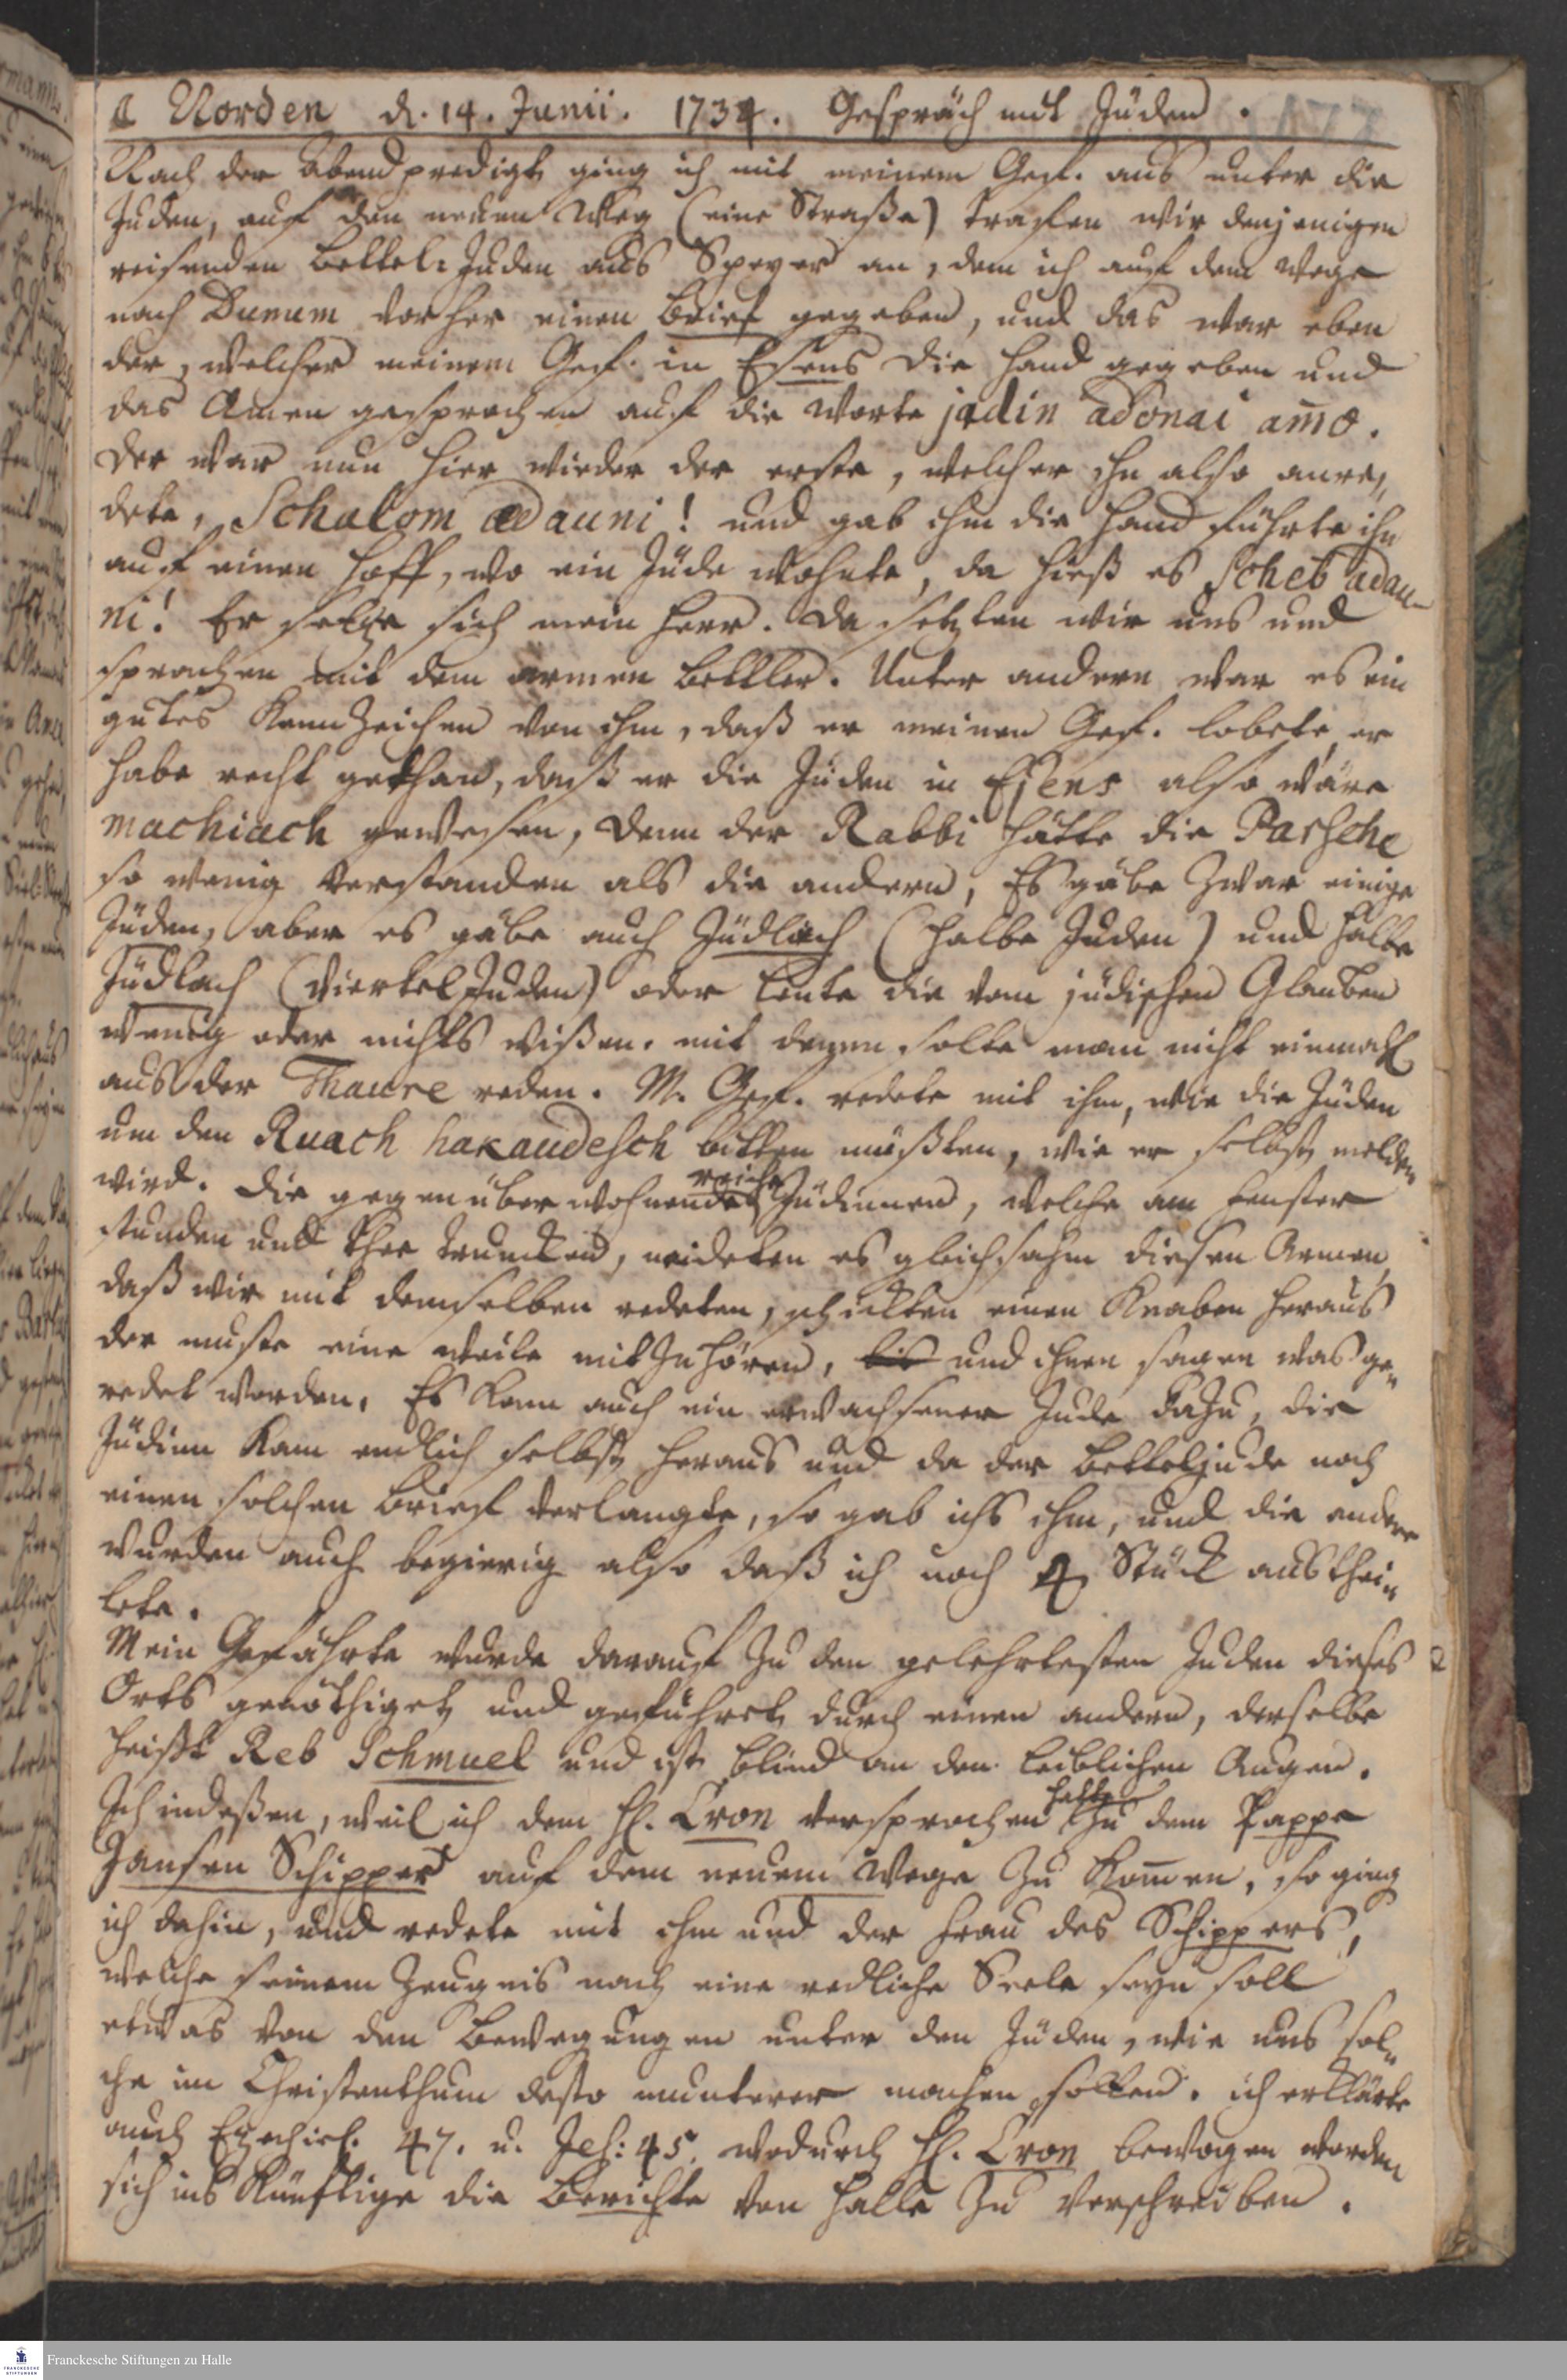 a Norden d. 14. Junii. 1734. Gespräch mit Juden. 177
Nach der Abendpredigt ging ich mit meinem Gef. aus unter die
Juden, auf den neuen Weg (eine Straße) traffen wir denjenigen
reisenden Bettel-Juden aus Speyer an, dem ich auf dem Wege
nach Dunum vorher einen Brief gegeben, und das war eben
der, welcher meinem Gef. in Esens die Hand gegeben und
das Amen gesprochen auf die Worte jadin adonai am̄o.
Der war nun hier wieder der erste, welcher ihn also anre,,
dete, Schalom adauni! und gab ihm die Hand führte ihn
auf einen Hoff, wo ein Jude wohnte, da hieß es Scheb adau-
ni! Er setze sich mein Herr. Da setzten wir uns und
sprachen mit dem armen Bettler. Unter andern war es ein
gutes Kennzeichen von ihm, daß er meinen Gef. lobete, er
habe recht gethan, daß er die Juden in Esens also wäre
machiach gewesen, denn der Rabbi hätte die Parsche
so wenig verstanden als die andern, Es gäbe zwar einige
Juden, aber es gäbe auch Jüdlach (halbe Juden) und halbe
Jüdlach (viertel Juden) oder Leute die vom jüdischen Glauben
wenig oder nichts wißen. mit denen solte man nicht einmahl
aus der Thaure reden. M. Gef. redete mit ihm, wie die Juden
um den Ruach hakaudesch bitten müßten, wie er selbst melden
wird. Die gegenüber wohnende reiche Jüdinnen, welche am Fenster
stunden und Thee truncken, neideten es gleichsahm diesen Armen,
daß wir mit demselben redeten, schickten einen Knaben heraus
der muste eine weile mit zuhören, bis und ihnen sagen was ge,,
redet worden. Es kam auch ein erwachsener Jude dazu, die
Jüdinn kam endlich selbst heraus und da der Betteljude noch
einen solchen Brief verlangte, so gab ichs ihm, und die andern
wurden auch begierig also daß ich noch 4 Stück austhei,,
lete.
Mein Gefährte wurde darauf zu den gelehrtesten Juden dieses
Orts genöthiget und geführet durch einen andern, derselbe
heißt Reb Schmuel und ist blind an den leiblichen Augen.
Ich indeßen, weil ich dem H. Cron versprochen hatte zu dem Pappe
Jansen Schipper auf dem neuem Wege zu kom̄en, so ging
ich dahin, und redete mit ihm und der Frau des Schippers,
welche seinem Zeugnis nach eine redliche Seele seyn soll
etwas von den Bewegungen unter den Juden, wie uns sol,,
che im Christenthum desto munterer machen solten. ich erklärte
auch Ezechiel. 47. u. Jes: 45. wodurch H. Cron bewogen worden
sich ins künftige die Berichte von Halle zu verschreiben.
Franckesche Stiftungen zu Halle